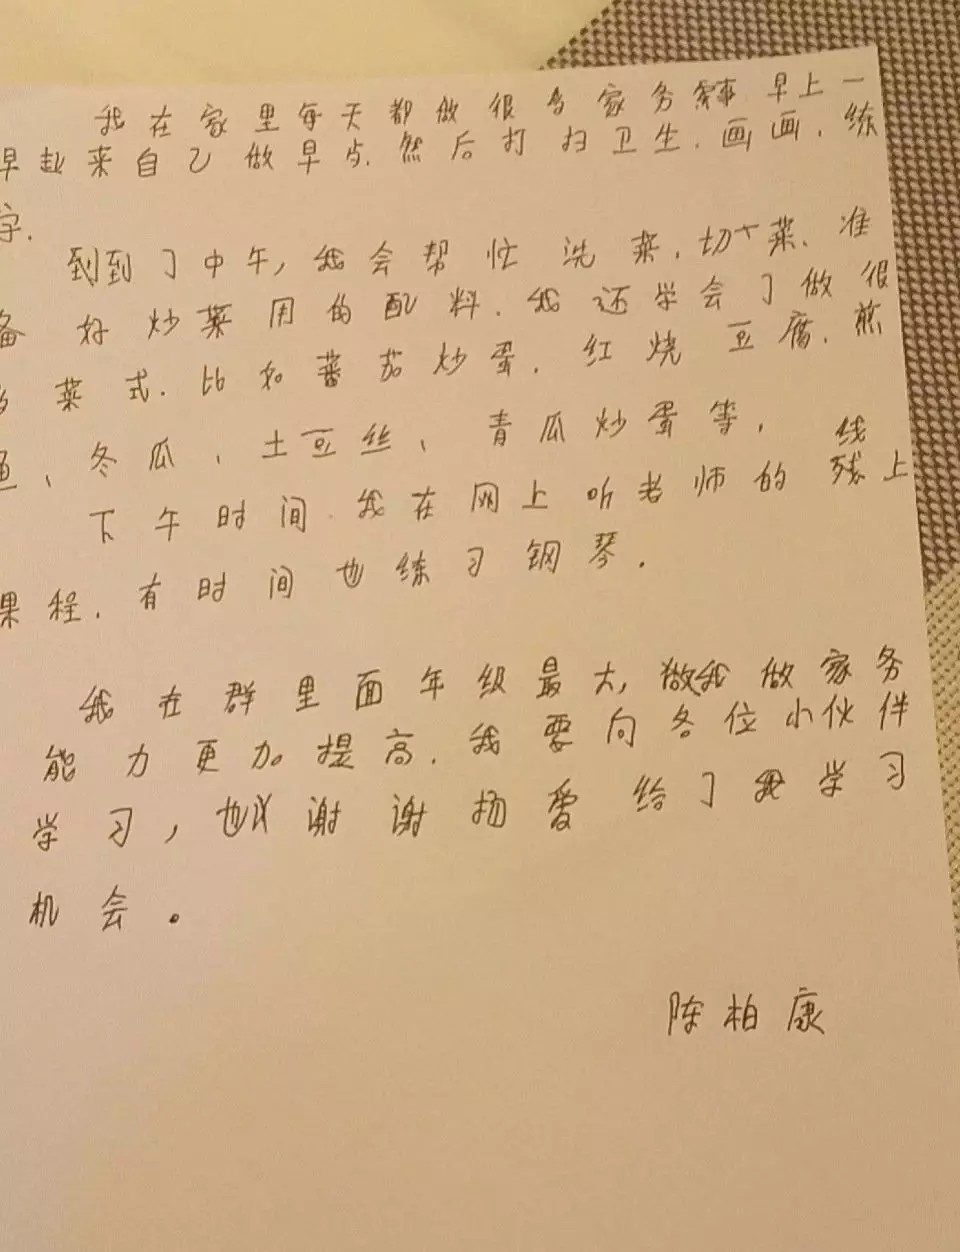 我在家里每天都做很多家务事.早上一
早起来自己做早点.然后打扫卫生.画画.练
字.
到到了中午,我会帮忙洗菜.切菜.准
备好炒菜用的配料.我还学会了做很
多菜式.比如蕃茄炒蛋.红烧豆腐.煎
鱼、冬瓜、土豆丝、青瓜炒蛋等.
线
下午时间.我在网上听老师的残上
课程.有时间也练习钢琴.
我在群里面年级最大,做我做家务
能力更加提高.我要向各位小伙伴
学习,也谢谢扬爱给了我学习
机会。
陈柏康